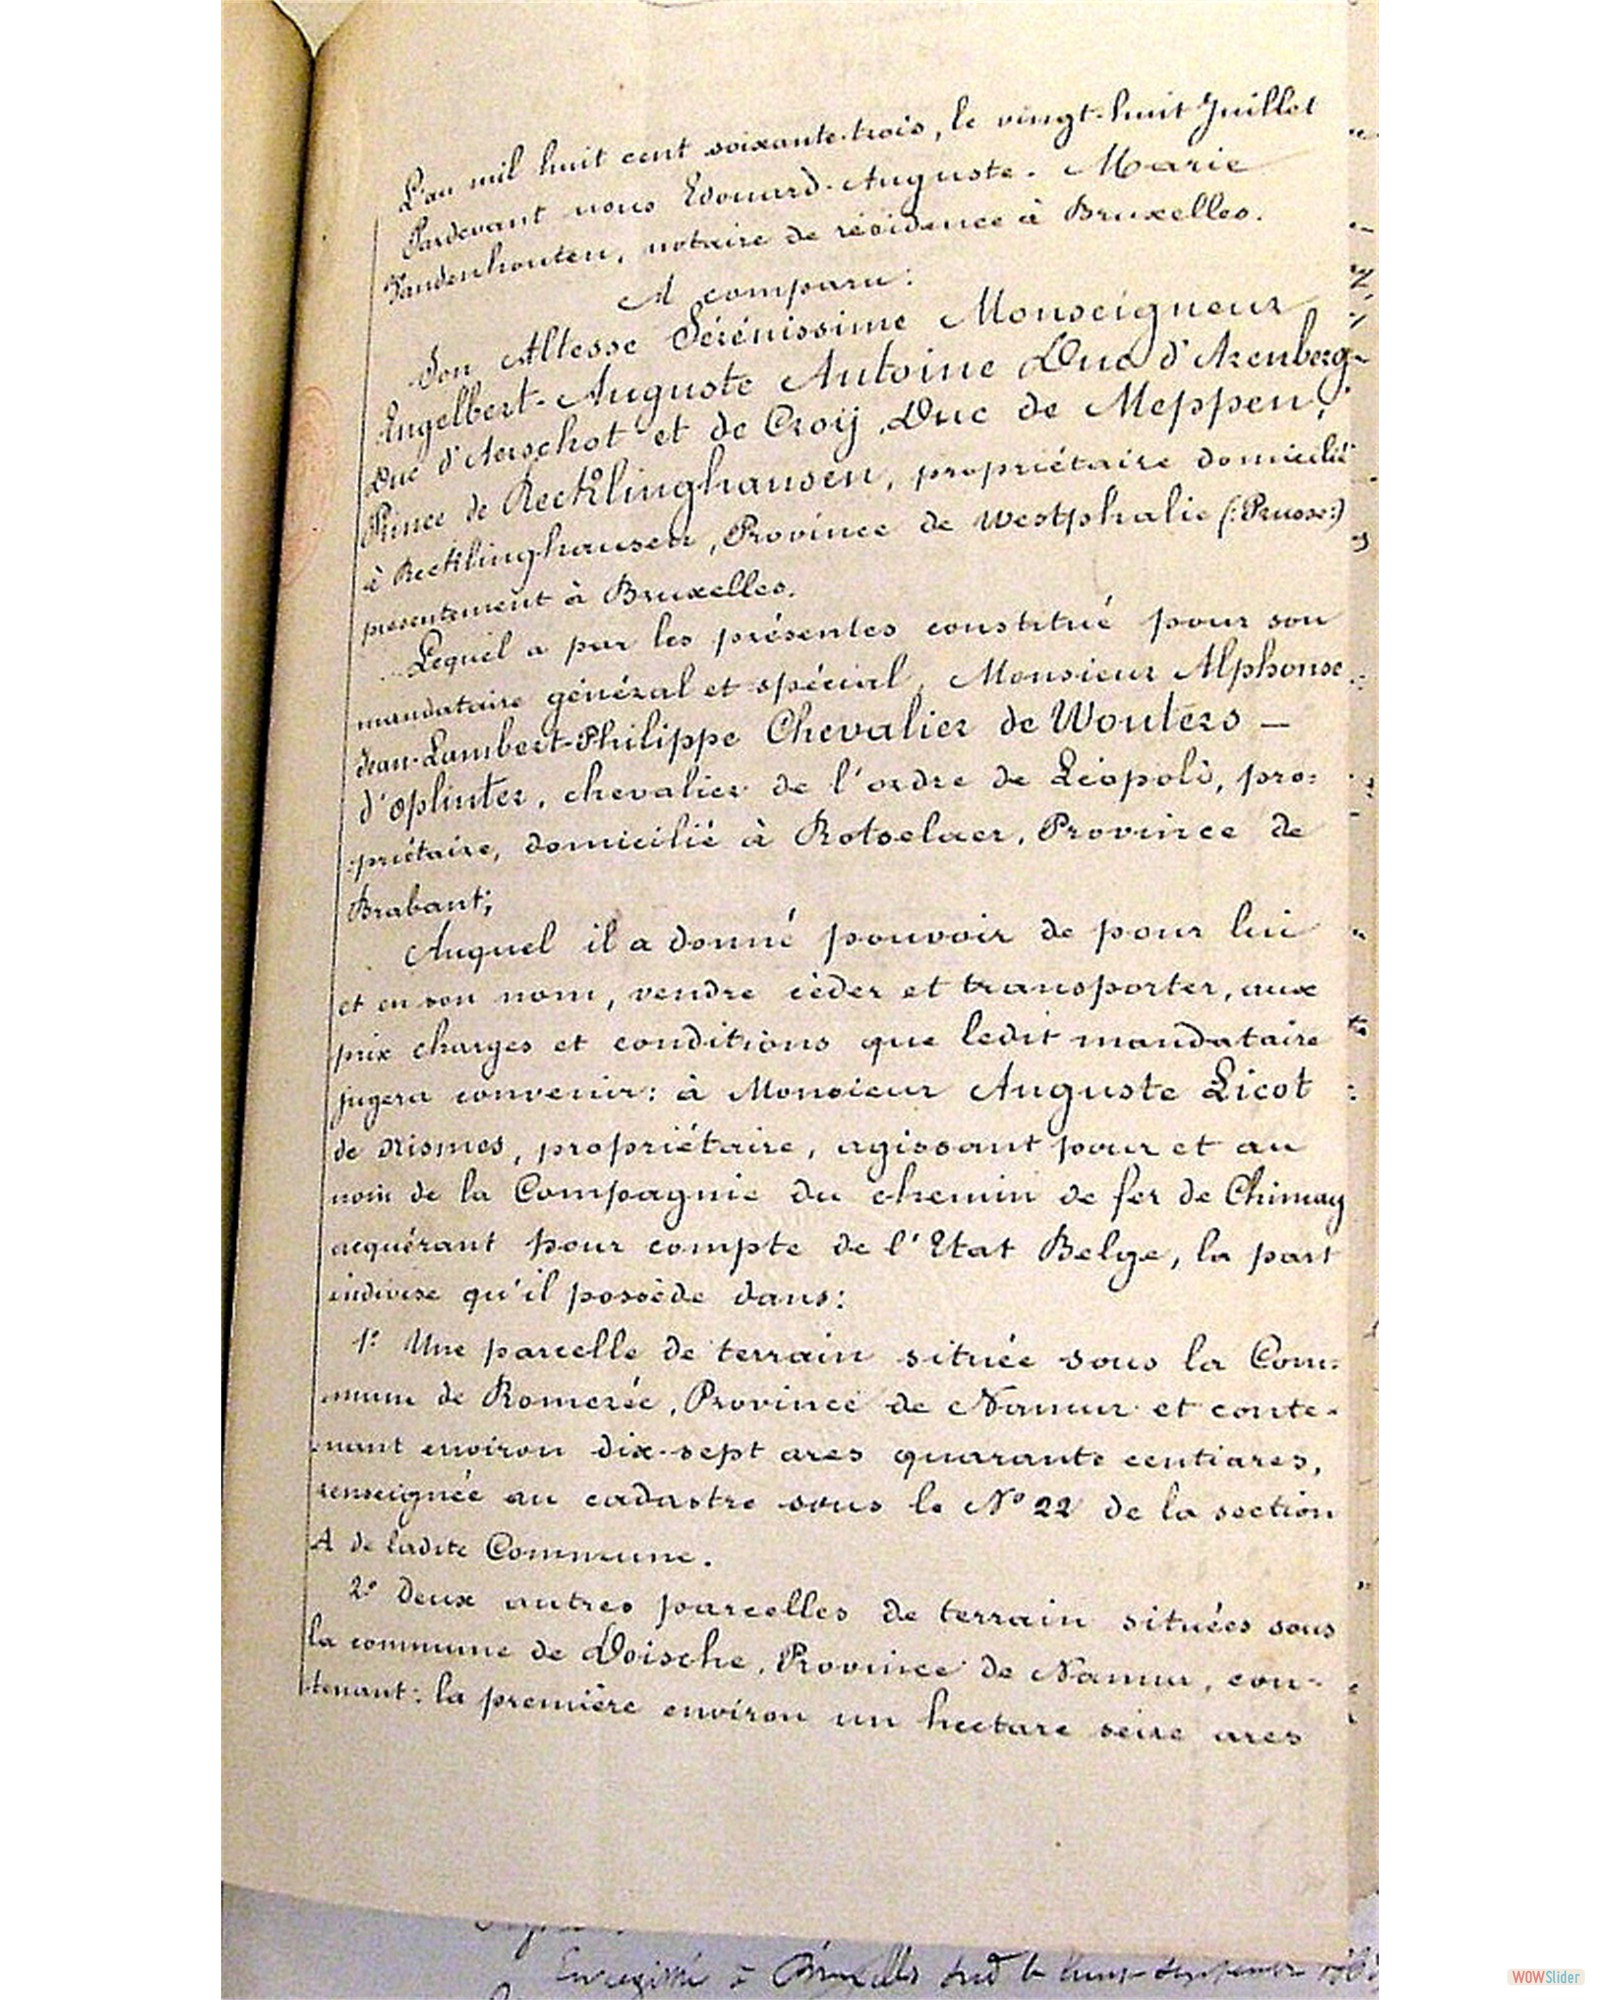 L'an mil huit cent soixante-trois, le vingt-huit Juillet
Pardevant nous Edouard-Auguste-Marie
Vandenhouten, notaire de résidence à Bruxelles.
A comparu:
Son Altesse Sérénissime Monseigneur
Engelbert-Auguste Antoine Duc d'Arenberg-
Duc d'Aerschot et de Croÿ, Duc de Meppen,
Prince de Recklinghausen, propriétaire domicilié
à Recklinghausen, Province de Westphalie (:Prusse:)
présentement à Bruxelles.
Lequel a par les présentes constitué pour son
mandataire général et spécial, Monsieur Alphonse
Jean-Lambert-Philippe Chevalier de Wouters –
d'Oplinter, chevalier de l'ordre de Léopold, pro=
priétaire, domicilié à Rotselaer, Province de
Brabant;
Auquel il a donné pouvoir de pour lui
et en son nom, vendre céder et transporter, aux
prix charges et conditions que ledit mandataire
jugera convenir: à Monsieur Auguste Licot
de Nismes, propriétaire, agissant pour et au
nom de la Compagnie du chemin de fer de Chimay
acquérant pour compte de l'Etat Belge, la part
indivise qu'il possède dans:
1º Une parcelle de terrain située sous la Com=
mune de Romerée, Province de Namur et conte-
nant environ dix-sept ares quarante centiares,
renseignée au cadastre sous le Nº 22 de la section
A de ladite Commune.
2º Deux autres parcelles de terrain situées sous
la commune de Doische, Province de Namur, con-
tenant: la première environ un hectare seize ares
Enregistré à Bruxelles sud le
WOWSlider